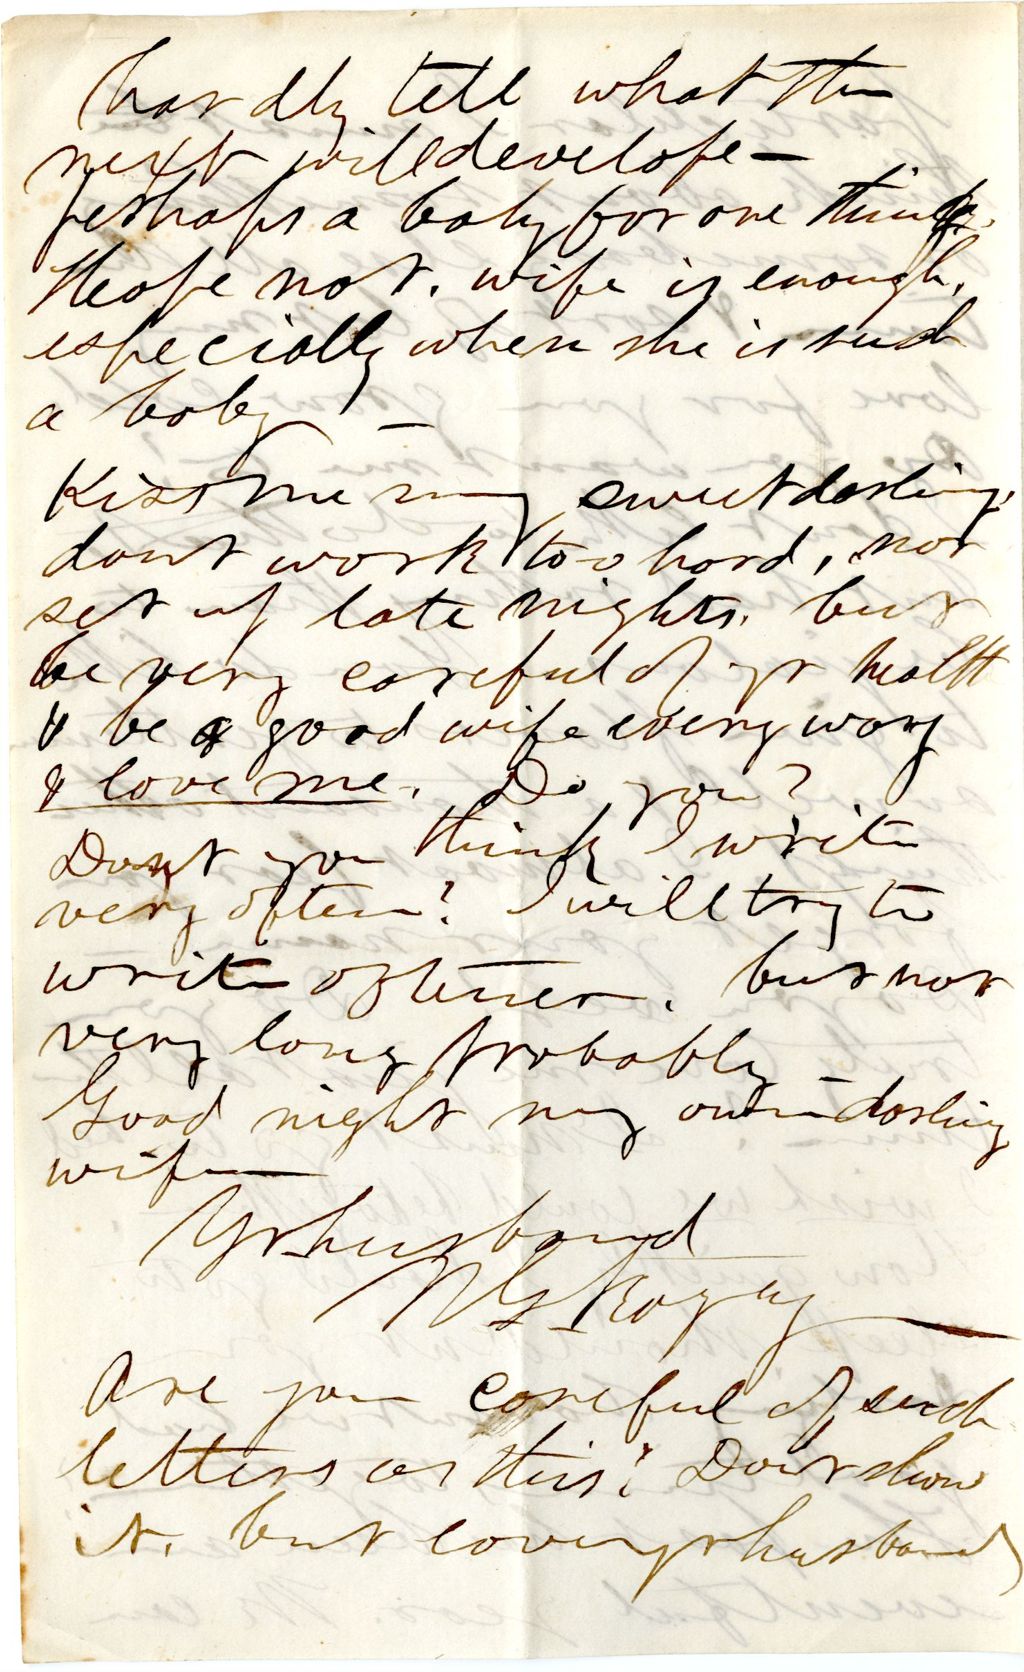 hardly tell what the
next will develope —
perhaps a baby for one thing.
I hope not. wife is enough,
especially when she is such
a baby —
Kiss me my sweet darling,
dont work too hard, nor
set up late nights. but
be very careful of yr health
& be a good wife every way
& love me. Do you?
Don't you think I write
very often? I will try to
write oftener. but not
very long probably
Good night my own darling
wife —
Yr husband
Are you careful of such
letters as this? Dont show
it. but love yr husband